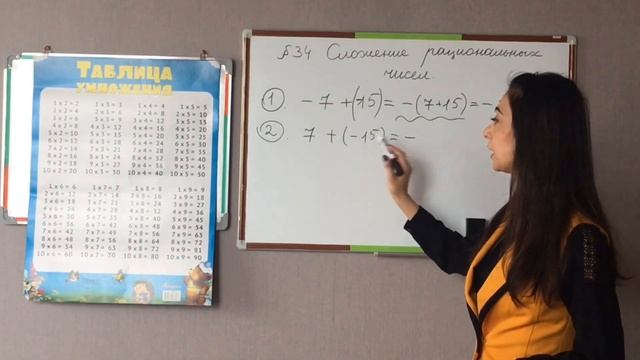 ТАБЛИЦА
УМНОЖЕНИЯ
1 x 2 = 2 1 x 3 = 3 1 x 4 = 4 1 x 5 = 5
2 x 2 = 4 2 x 3 = 6 2 x 4 = 8 2 x 5 = 10
3 x 2 = 6 3 x 3 = 9 3 x 4 = 12 3 x 5 = 15
4 x 2 = 8 4 x 3 = 12 4 x 4 = 16 4 x 5 = 20
5 x 2 = 10 5 x 3 = 15 5 x 4 = 20 5 x 5 = 25
6 x 2 = 12 6 x 3 = 18 6 x 4 = 24 6 x 5 = 30
7 x 2 = 14 7 x 3 = 21 7 x 4 = 28 7 x 5 = 35
8 x 2 = 16 8 x 3 = 24 8 x 4 = 32 8 x 5 = 40
9 x 2 = 18 9 x 3 = 27 9 x 4 = 36 9 x 5 = 45
10 x 2 = 20 10 x 3 = 30 10 x 4 = 40 10 x 5 = 50
1 x 6 = 6 1 x 7 = 7 1 x 8 = 8 1 x 9 = 9
2 x 6 = 12 2 x 7 = 14 2 x 8 = 16 2 x 9 = 18
3 x 6 = 18 3 x 7 = 21 3 x 8 = 24 3 x 9 = 27
4 x 6 = 24 4 x 7 = 28 4 x 8 = 32 4 x 9 = 36
5 x 6 = 30 5 x 7 = 35 5 x 8 = 40 5 x 9 = 45
6 x 6 = 36 6 x 7 = 42 6 x 8 = 48 6 x 9 = 54
7 x 6 = 42 7 x 7 = 49 7 x 8 = 56 7 x 9 = 63
8 x 6 = 48 8 x 7 = 56 8 x 8 = 64 8 x 9 = 72
9 x 6 = 54 9 x 7 = 63 9 x 8 = 72 9 x 9 = 81
10 x 6 = 60 10 x 7 = 70 10 x 8 = 80 10 x 9 = 90
§34 Сложение рациональных
чисел.
1. - 7 + (-15) = - (7+15) = -
2. 7 + (-15) = -